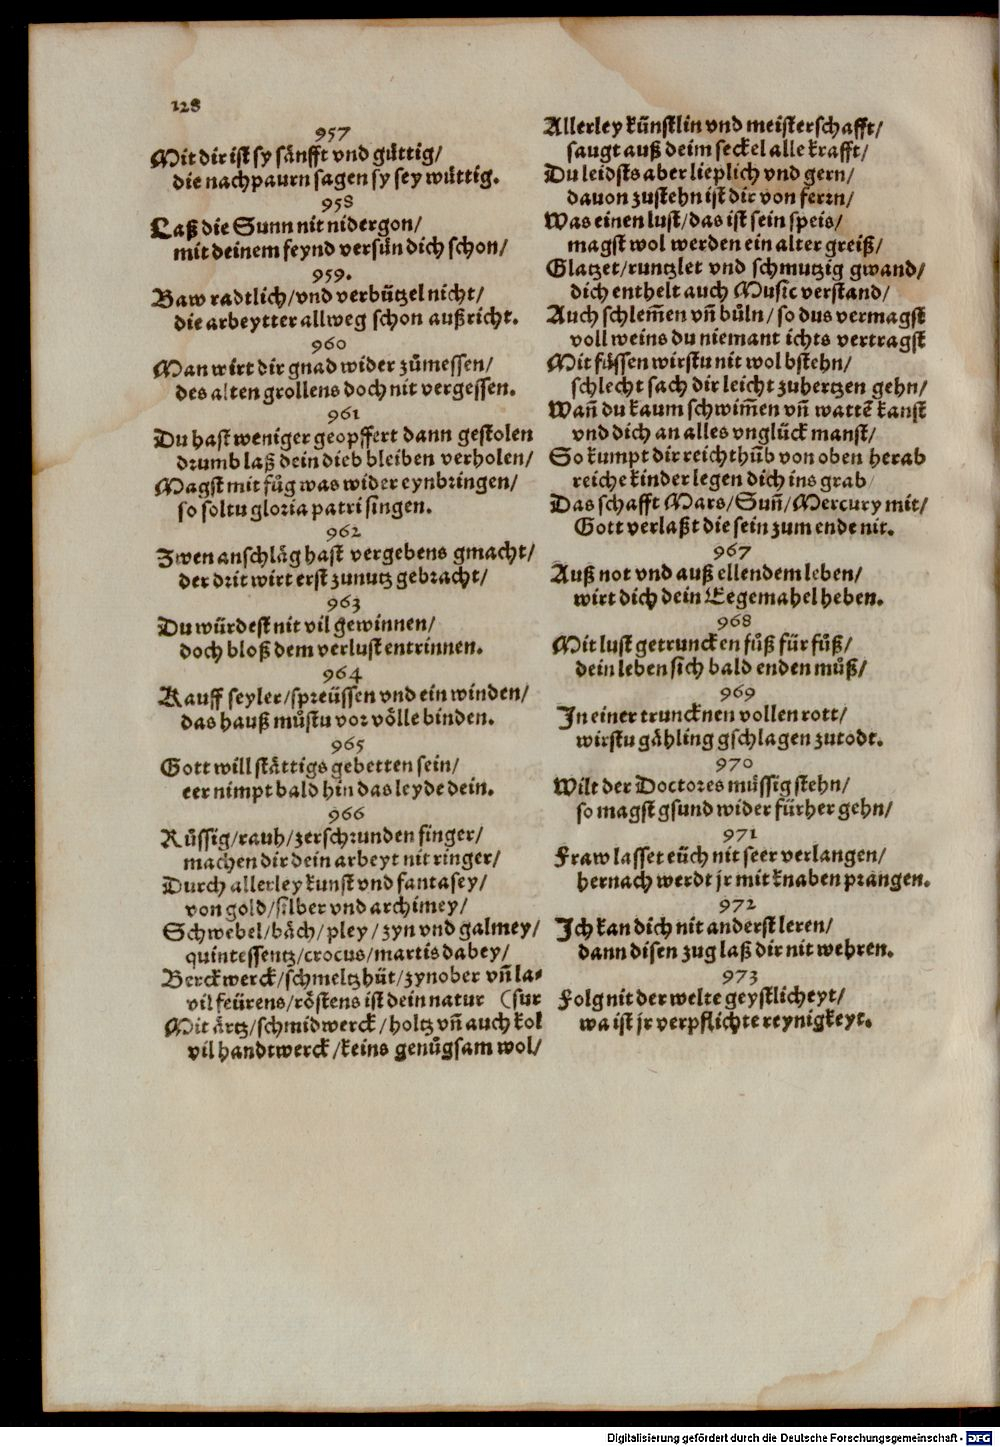 128
957
Mit dir ist sy sänfft vnd güttig/
die nachpaurn sagen sy sey wüttig.
958
Laß die Sunn nit nidergon/
mit deinem feynd versün dich schon/
959.
Baw radtlich/vnd verbützel nicht/
die arbeytter allweg schon außricht.
960
Man wirt dir gnad wider zůmessen/
des alten grollens doch nit vergessen.
961
Du hast weniger geopffert dann gestolen
drumb laß dein dieb bleiben verholen/
Magst mit fůg was wider eynbringen/
so soltu gloria patri singen.
962
Zwen anschläg hast vergebens gmacht/
der drit wirt erst zunutz gebracht/
963
Du würdest nit vil gewinnen/
doch bloß dem verlust entrinnen.
964
Kauff seyler/spreüssen vnd ein winden/
das hauß můstu vor völle binden.
965
Gott will stättigs gebetten sein/
eer nimpt bald hin das leyde dein.
966
Růssig/rauh/zerschrunden finger/
machen dir dein arbeyt nit ringer/
Durch allerley kunst vnd fantasey/
von gold/silber vnd archimey/
Schwebel/bäch/pley/zyn vnd galmey/
quintessentz/crocus/martis dabey/
Berckwerck/schmeltzhüt/zynober vñ la-
vil feürens/röstens ist dein natur (sur
Mit ärtz/schmidwerck/holtz vñ auch kol
vil handtwerck/keins genůgsam wol/
Allerley künstlin vnd meisterschafft/
saugt auß deim seckel alle krafft/
Du leidsts aber lieplich vnd gern/
dauon zustehn ist dir von ferrn/
Was einen lust/das ist sein speis/
magst wol werden ein alter greiß/
Glatzet/runtzlet vnd schmutzig gwand/
dich enthelt auch Music verstand/
Auch schlem̃en vñ bůln/so dus vermagst
voll weins du niemant ichts vertragst
Mit füssen wirstu nit wol bstehn/
schlecht sach dir leicht zuhertzen gehn/
Wañ du kaum schwim̃en vñ wattẽ kanst
vnd dich an alles vnglück manst/
So kumpt dir reichthům̃b von oben herab
reiche kinder legen dich ins grab/
Das schafft Mars/Suñ/Mercury mit/
Gott verlaßt die sein zum ende nit.
967
Auß not vnd auß ellendem leben/
wirt dich dein Eegemahel heben.
968
Mit lust getruncken fůß für fůß/
dein leben sich bald enden můß/
969
In einer truncknen vollen rott/
wirstu gähling gschlagen zutodt.
970
Wilt der Doctores müssig stehn/
so magst gsund wider fürher gehn/
971
Fraw lasset eüch nit seer verlangen/
hernach werdt jr mit knaben prangen.
972
Ich kan dich nit anderst leren/
dann disen zug laß dir nit wehren.
973
Folg nit der welte geystlicheyt/
wa ist jr verpflichte reynigkeyt.
Digitalisierung gefördert durch die Deutsche Forschungsgemeinschaft - DFG